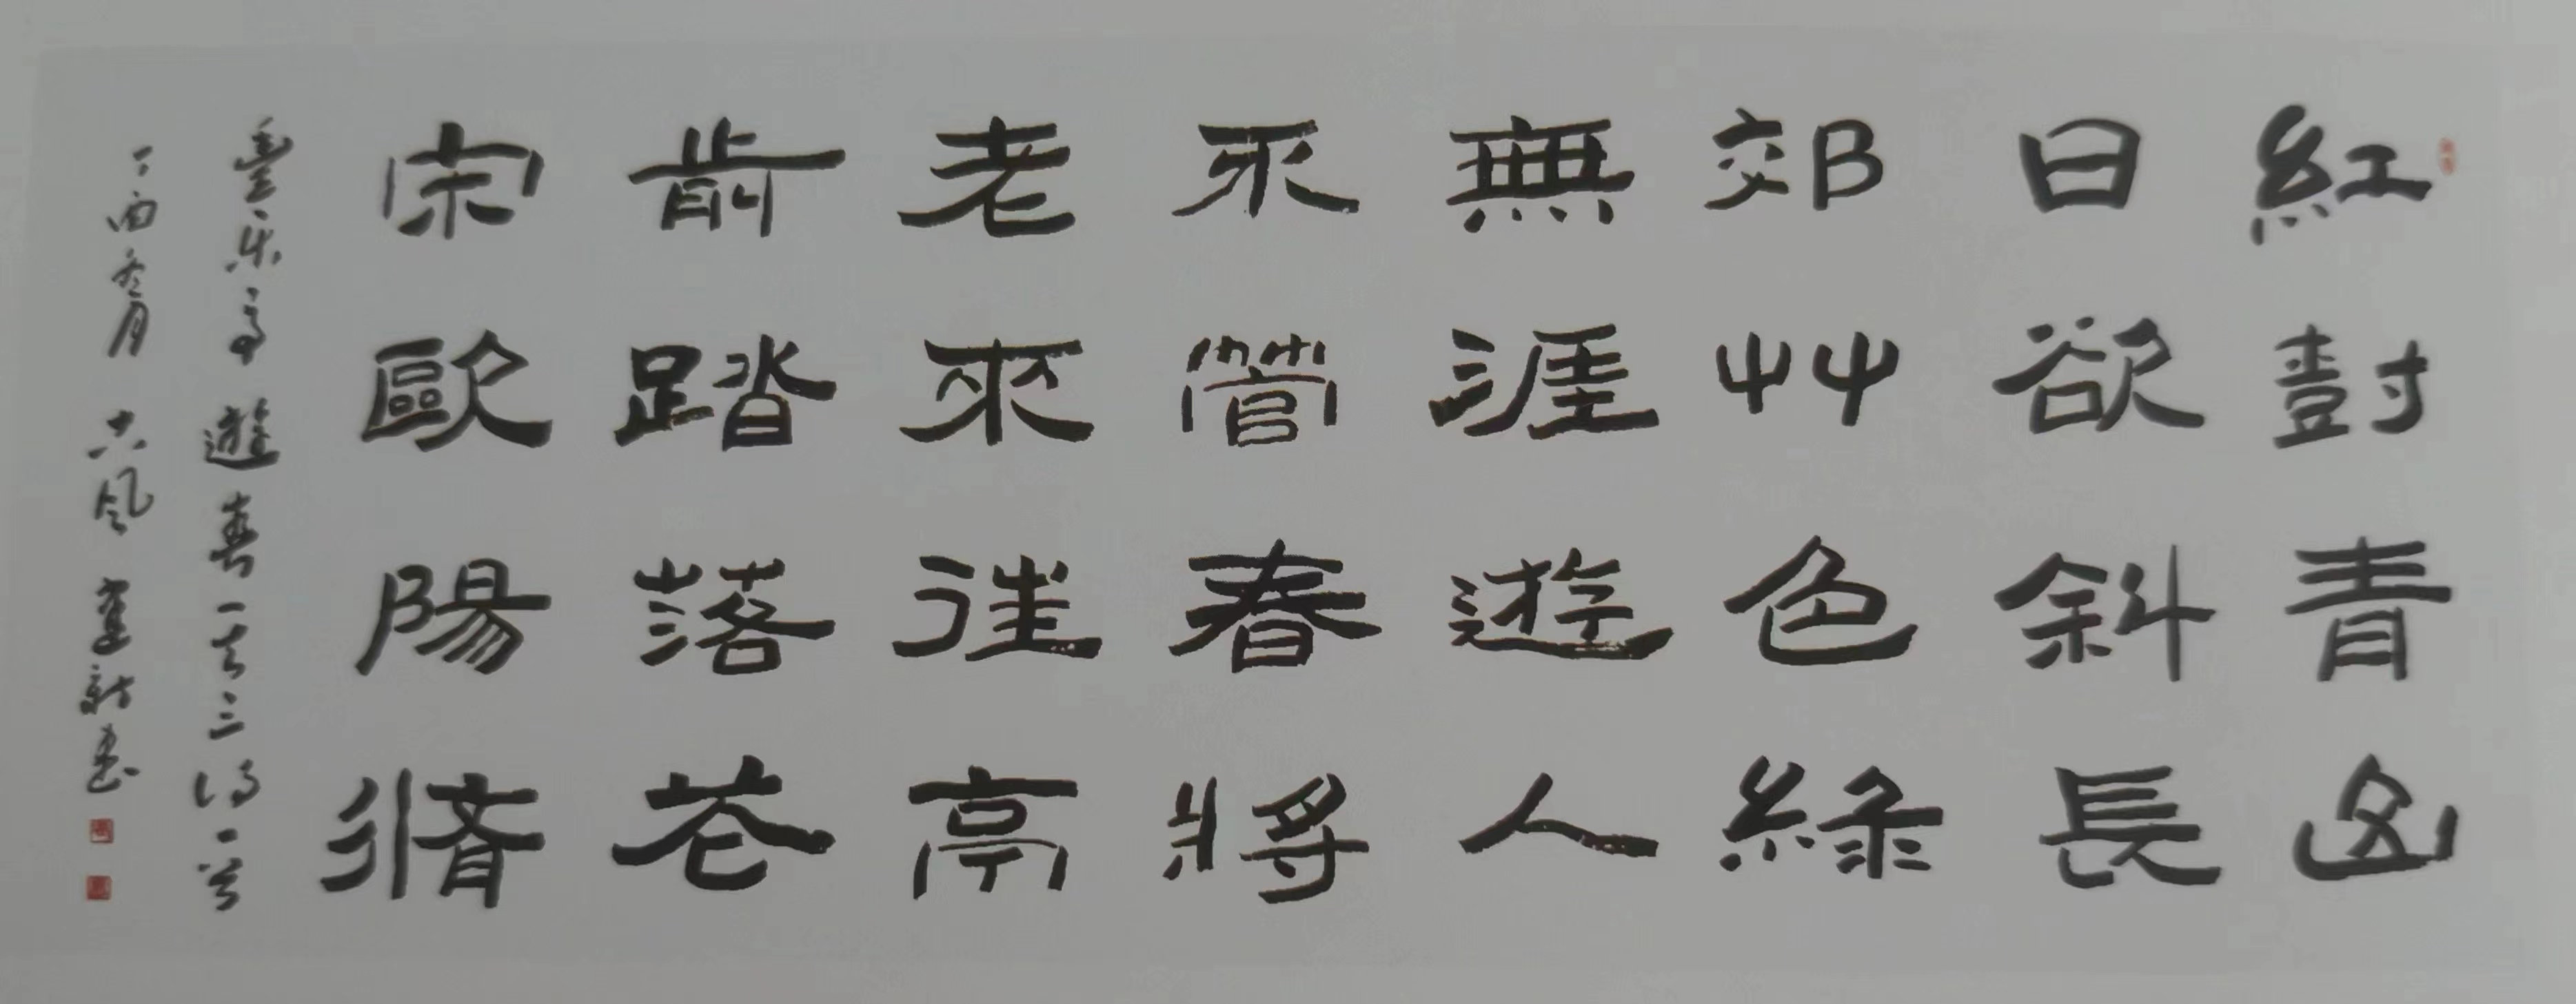 紅對青山
日欲斜長
郊艸色綠
無涯遊人
不管春將
老來往亭
前踏落花
宋歐陽脩
豐樂亭遊春一共三得一首
丁酉冬月 古風 建新書